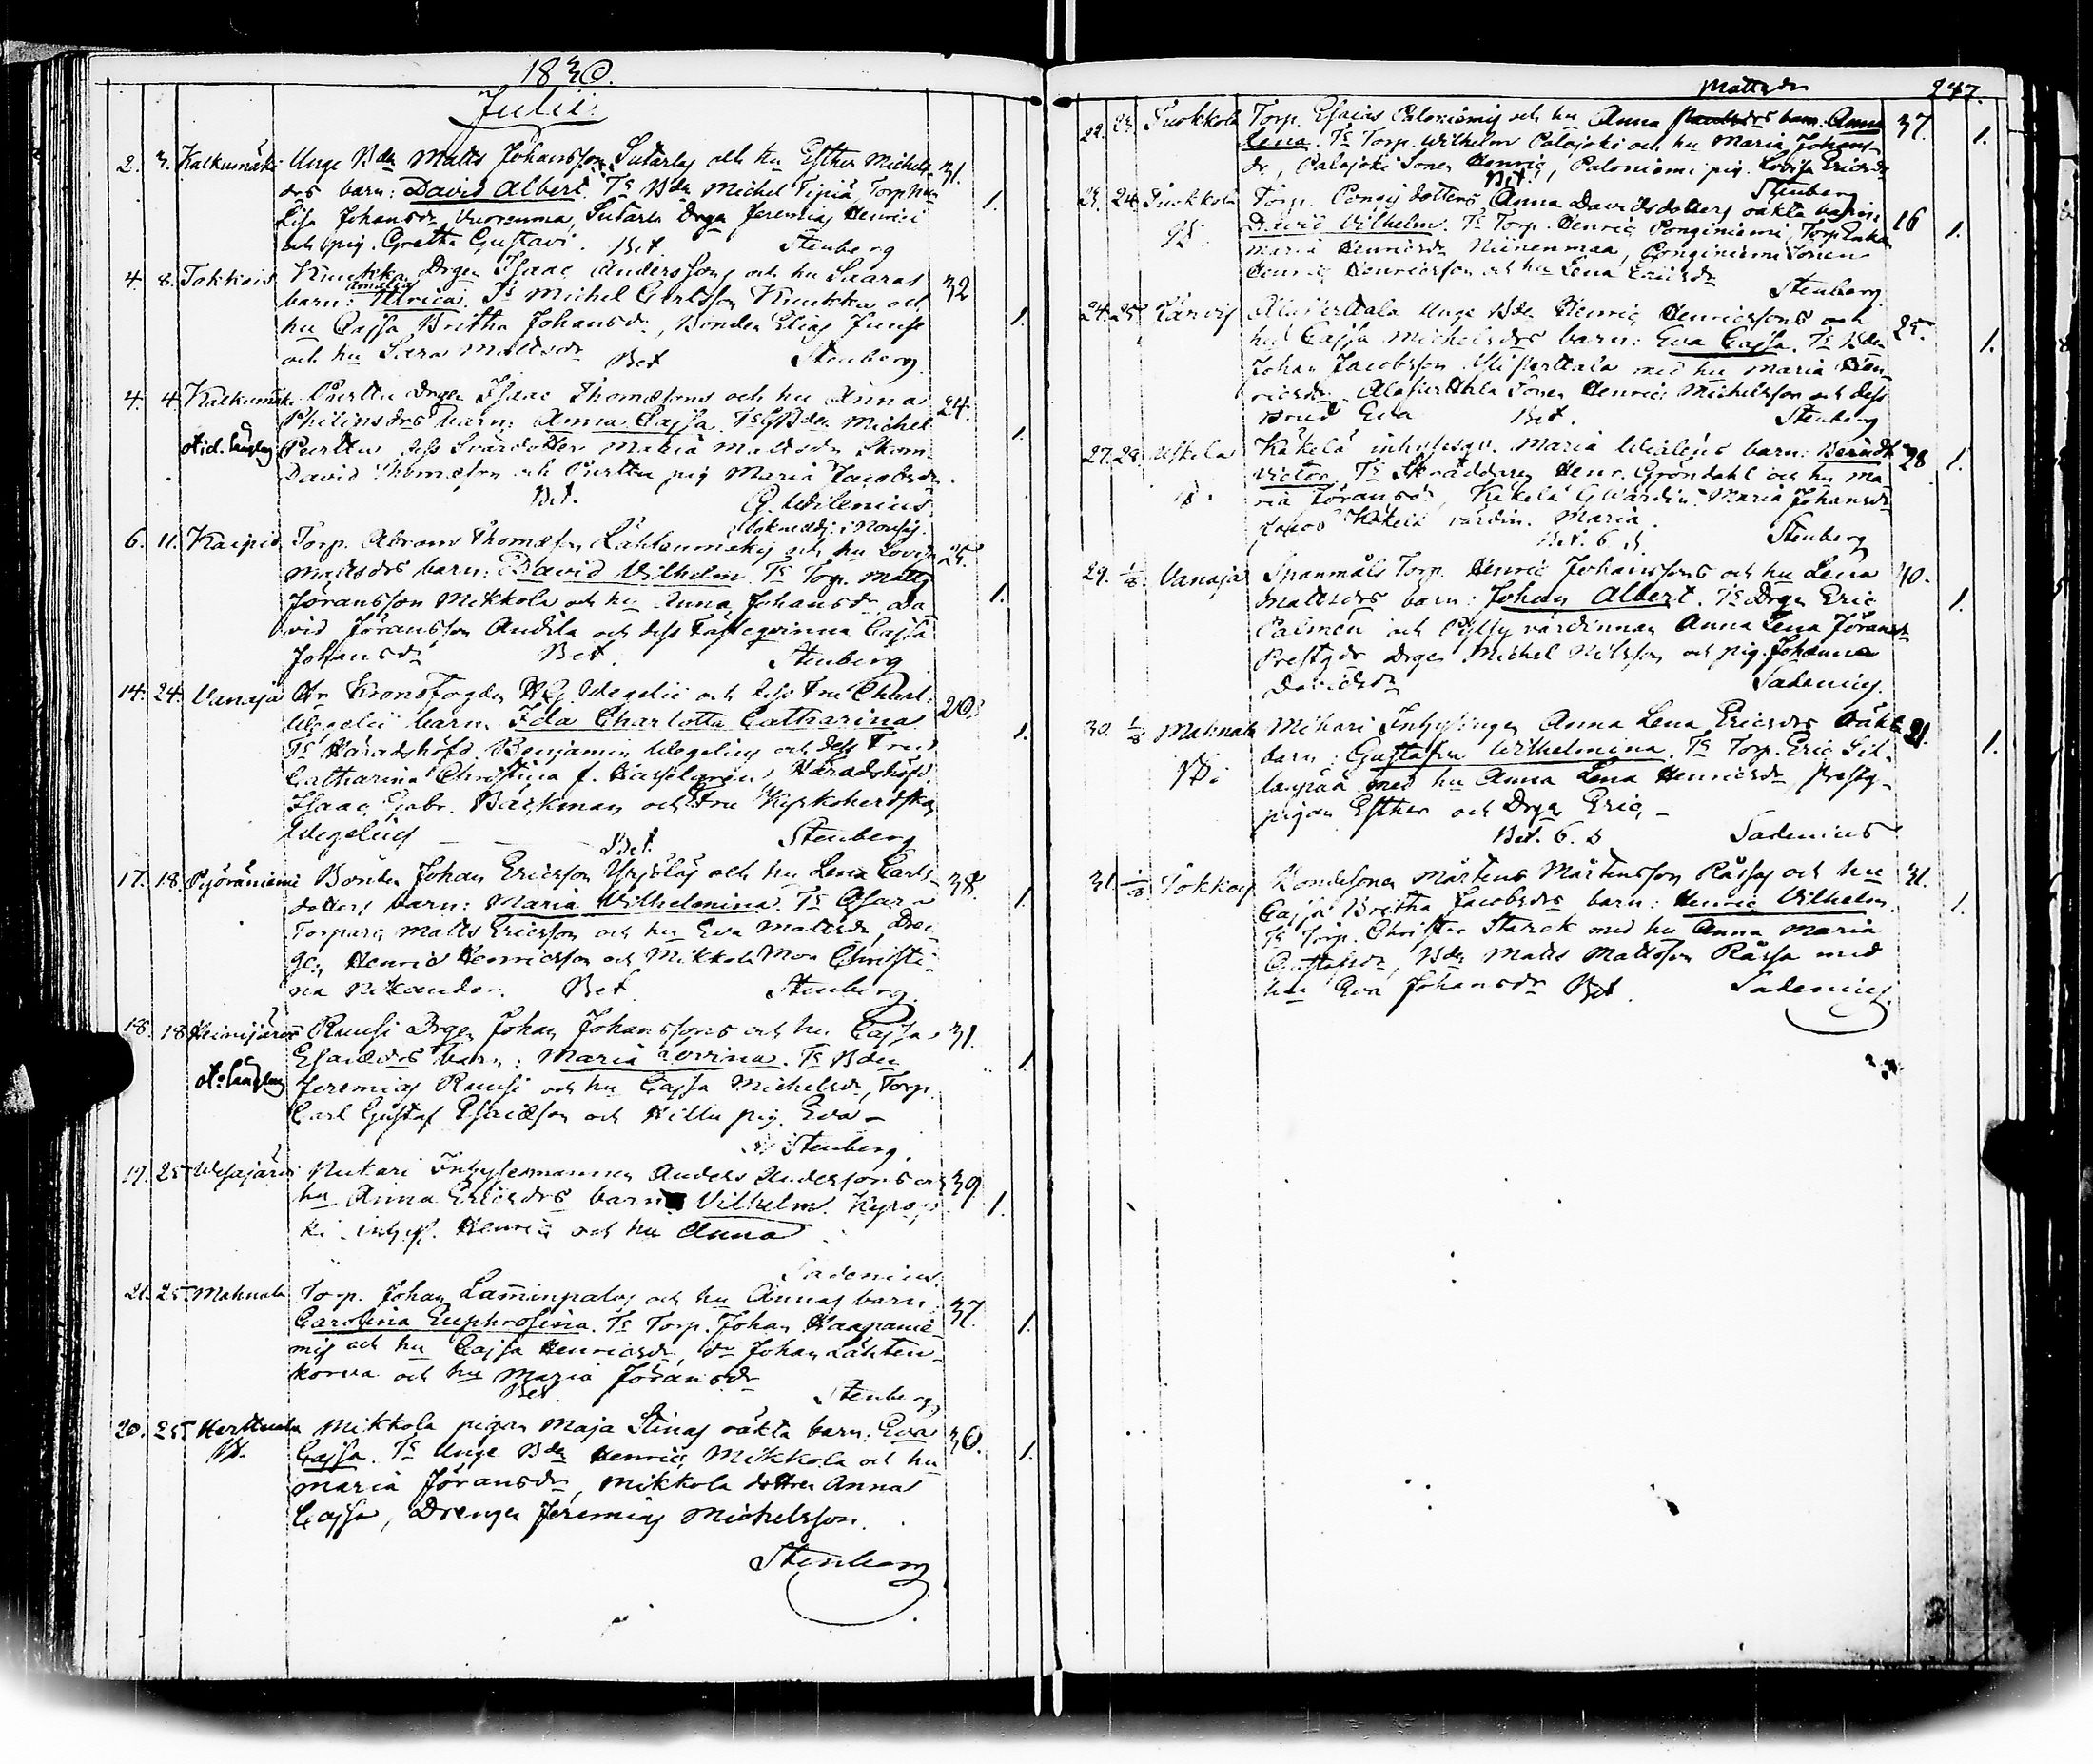 1830.
Julii.
2. 3. Kalkumäki Unge Bdn Matts Johansson Sutarlas och hu Esther Michels- 31.
drs barn: David Albert. Ts Bdn Michel Torp 1.
Lisa Johansdr Vuorenmaa, Sutarla Drgn Jeremias Henrici
och pig. Gretha Gustavi. Bet. Stenberg
4. 8. Tokkois Knukka Drgen Isaac Anderssons och hu Saaras 32
barn: Amalia Ulrica. Ts Michel Carlsson Knukka och
hu Cajsa Britha Johansdr, Bonden Elias Junse 1.
och hu Sara Mattsdr Bet Stenberg
4. 4. Kalkumäki Purttu Drgen Isaac Thomæsons och hu Anna 24.
Philipsdrs barn: Anna Cajsa. Ts GBdn Michel 1.
Purttu dess Svärdotter Maria Mattsdr Skom.
David Thomæson och Purttu pig Maria Jacobsdr.
Bet. G. Wilenius
6. 11. Kaipio Torp. Abram Thomæson Lähteenmäkis och hu Lovisa 25.
Mattsdrs barn: David Vilhelm. Ts Torp. Matts
Jöransson Mikkola och hu Anna Johansdr, Da- 1.
vid Jöransson Anttila och dess Fästeqvinna Cajsa
Johansdr Bet. Stenberg
14. 24. Vanaja Hr Kronofogden H.G. Wegelii och dess Fru Charl.
Wegelii barn. Ida Charlotta Catharina 20.
Ts Häradshöfd. Benjamin Wegelius och dess Fru 1.
Catharina Christina f. Hasselgren, Häradshöfd.
Isaac Gabr. Bäckman och Fru Kyrkoherdskan
Wegelius Bet. Stenberg
17. 18. Pyöräniemi Bonden Johan Ericsson Yrjöläs och hu Lena Carls- 38.
dotters barn: Maria Vilhelmina. Ts 1.
Torparen Matts Ericsson och hu Eva Mattsdr, Dren-
gen Henric Henricsson och Mikkola Mor Christi-
na Nikander. Bet Stenberg.
18. 18 Heinijärvi Ruusi Drgen Johan Johanssons och hu Cajsa 31.
Esaiædrs barn: Maria Lovina. Ts Bdn 1.
Jeremias Ruusi och hu Cajsa Michelsdr, Torp.
Carl Gustaf Esaiæson och Hillu pig. Eva
Stenberg.
19. 25 Wesajärvi Nikari Inhysesmannen Anders Anderssons och 39
hu Anna Ericsdrs barn Vilhelm. 1.
inhys. Henric och hu Anna
Sadenius.
21. 25. Mahnala Torp. Johan Lamminpalos och hu Annas barn 37.
Carolina Euphrosina. Ts Torp. Johan Haapanie- 1.
mis och hu Cajsa Henricsdr, do Johan Lähten-
korva och hu Maria Jöransdr
Bet Stenberg
20. 25 Herttuala Mikkola pigan Maja Stinas oäkta barn: Eva 30.
Cajsa. Ts Unge Bdn Henric Mikkola och hu 1.
Maria Jöransdr, Mikkola dottren Anna
Cajsa, Drengen Jeremias Michelsson.
Stenberg
Mattsdr 247.
22. 23. Tuokkola Torp. Esaias Paloniemis och hu Anna barn. Anna 37.
Lena. Ts Torp. Wilhelm Palojoki och hu Maria Johans- 1.
dr, Palojoki Sonen Henric, Paloniemi pig. Lovisa Ericsdr
Bet. Stenberg
23. 24 Tuokkola Torp. dottern Anna Davidsdotters oäkta barn 16
David Vilhelm. Ts Torp. Henric Ponginiemi, Torp. Enkan 1.
Maria Henricsdr Niinenmaa, Ponginiemi Sonen
Henric Henricsson och hu Lena Ericsdr
Stenberg.
24. 25 Kärvis Unge Bdn Henric Henricssons och 25.
hu Cajsa Michelsdrs barn: Eva Cajsa. Ts Bdn 1.
Johan Jacobsson med hu Maria Hen-
ricsdr, Sonen Henric Michelsson och dess
Brud Eva Bet. Stenberg
27. 28. Uskela Käkelä inhysesqv. Maria barn: Berndt 28
Victor. Ts Skräddaren Henr. Gröndahl och hu Ma- 1.
ria Jöransdr, Käkelä Maria Johansdr
Käkelä värdin. Maria.
Bet. 6. s. Stenberg
29. 1/8 Vanaja Spanmåls Torp. Henric Johanssons och hu Lena 40.
Mattsdrs barn: Johan Albert. Ts Drgn Eric 1.
Palmén och värdinnan Anna Lena Jöransdr
Prestgds Drgn Michel Nilsson och pig. Johanna
Davidsdr Sadenius.
30. 1/8 Mahnala Mihari Inhysingen Anna Lena Ericsdrs oäkta 21.
barn: Gustafva Wilhelmina. Ts Torp. Eric Sil- 1.
lanpää med hu Anna Lena Henricsdr, prestg-
pigan Esther och Drgn Eric
Bet. 6. s Sadenius
31. 1/8 Tokkois Bondesonen Mårtens Mårtensson Rässäs och hu 31.
Cajsa Britha Jacobsdrs barn: Henric Vilhelm. 1.
Ts Torp. Christer Starck med hu Anna Maria
Gustafsdr, Bdn Matts Mattsson Rässä med
hu Eva Johansdr Bet. Sadenius.